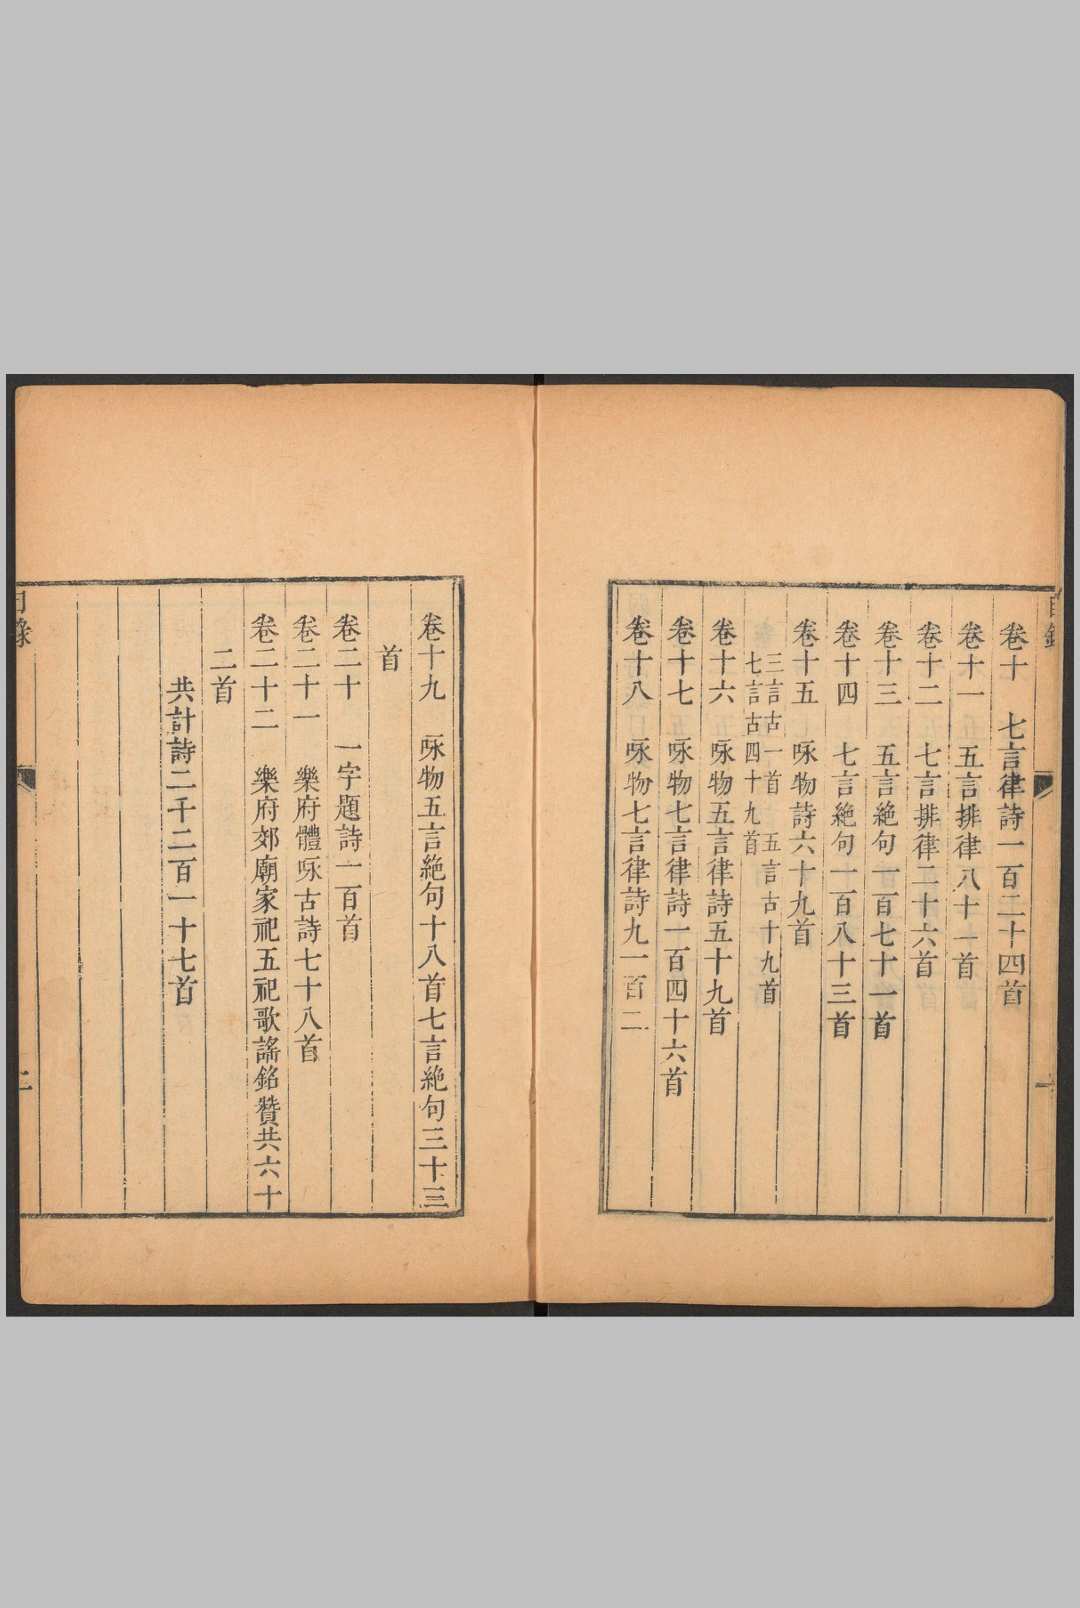 目錄
一
卷十 七言律詩一百二十四首
卷十一 五言排律八十一首
卷十二 七言排律二十六首
卷十三 五言絶句一百七十一首
卷十四 七言絶句一百八十三首
卷十五 咏物詩六十九首
三言古一首 五言古十九首
七言古四十九首
卷十六 咏物五言律詩五十九首
卷十七 咏物七言律詩一百四十六首
卷十八 咏物七言律詩九一百二
卷十九 咏物五言絶句十八首七言絶句三十三
首
卷二十 一字題詩一百首
卷二十一 樂府體咏古詩七十八首
卷二十二 樂府郊廟家祀五祀歌謠銘贊共六十
二首
共計詩二千二百一十七首
目錄
二